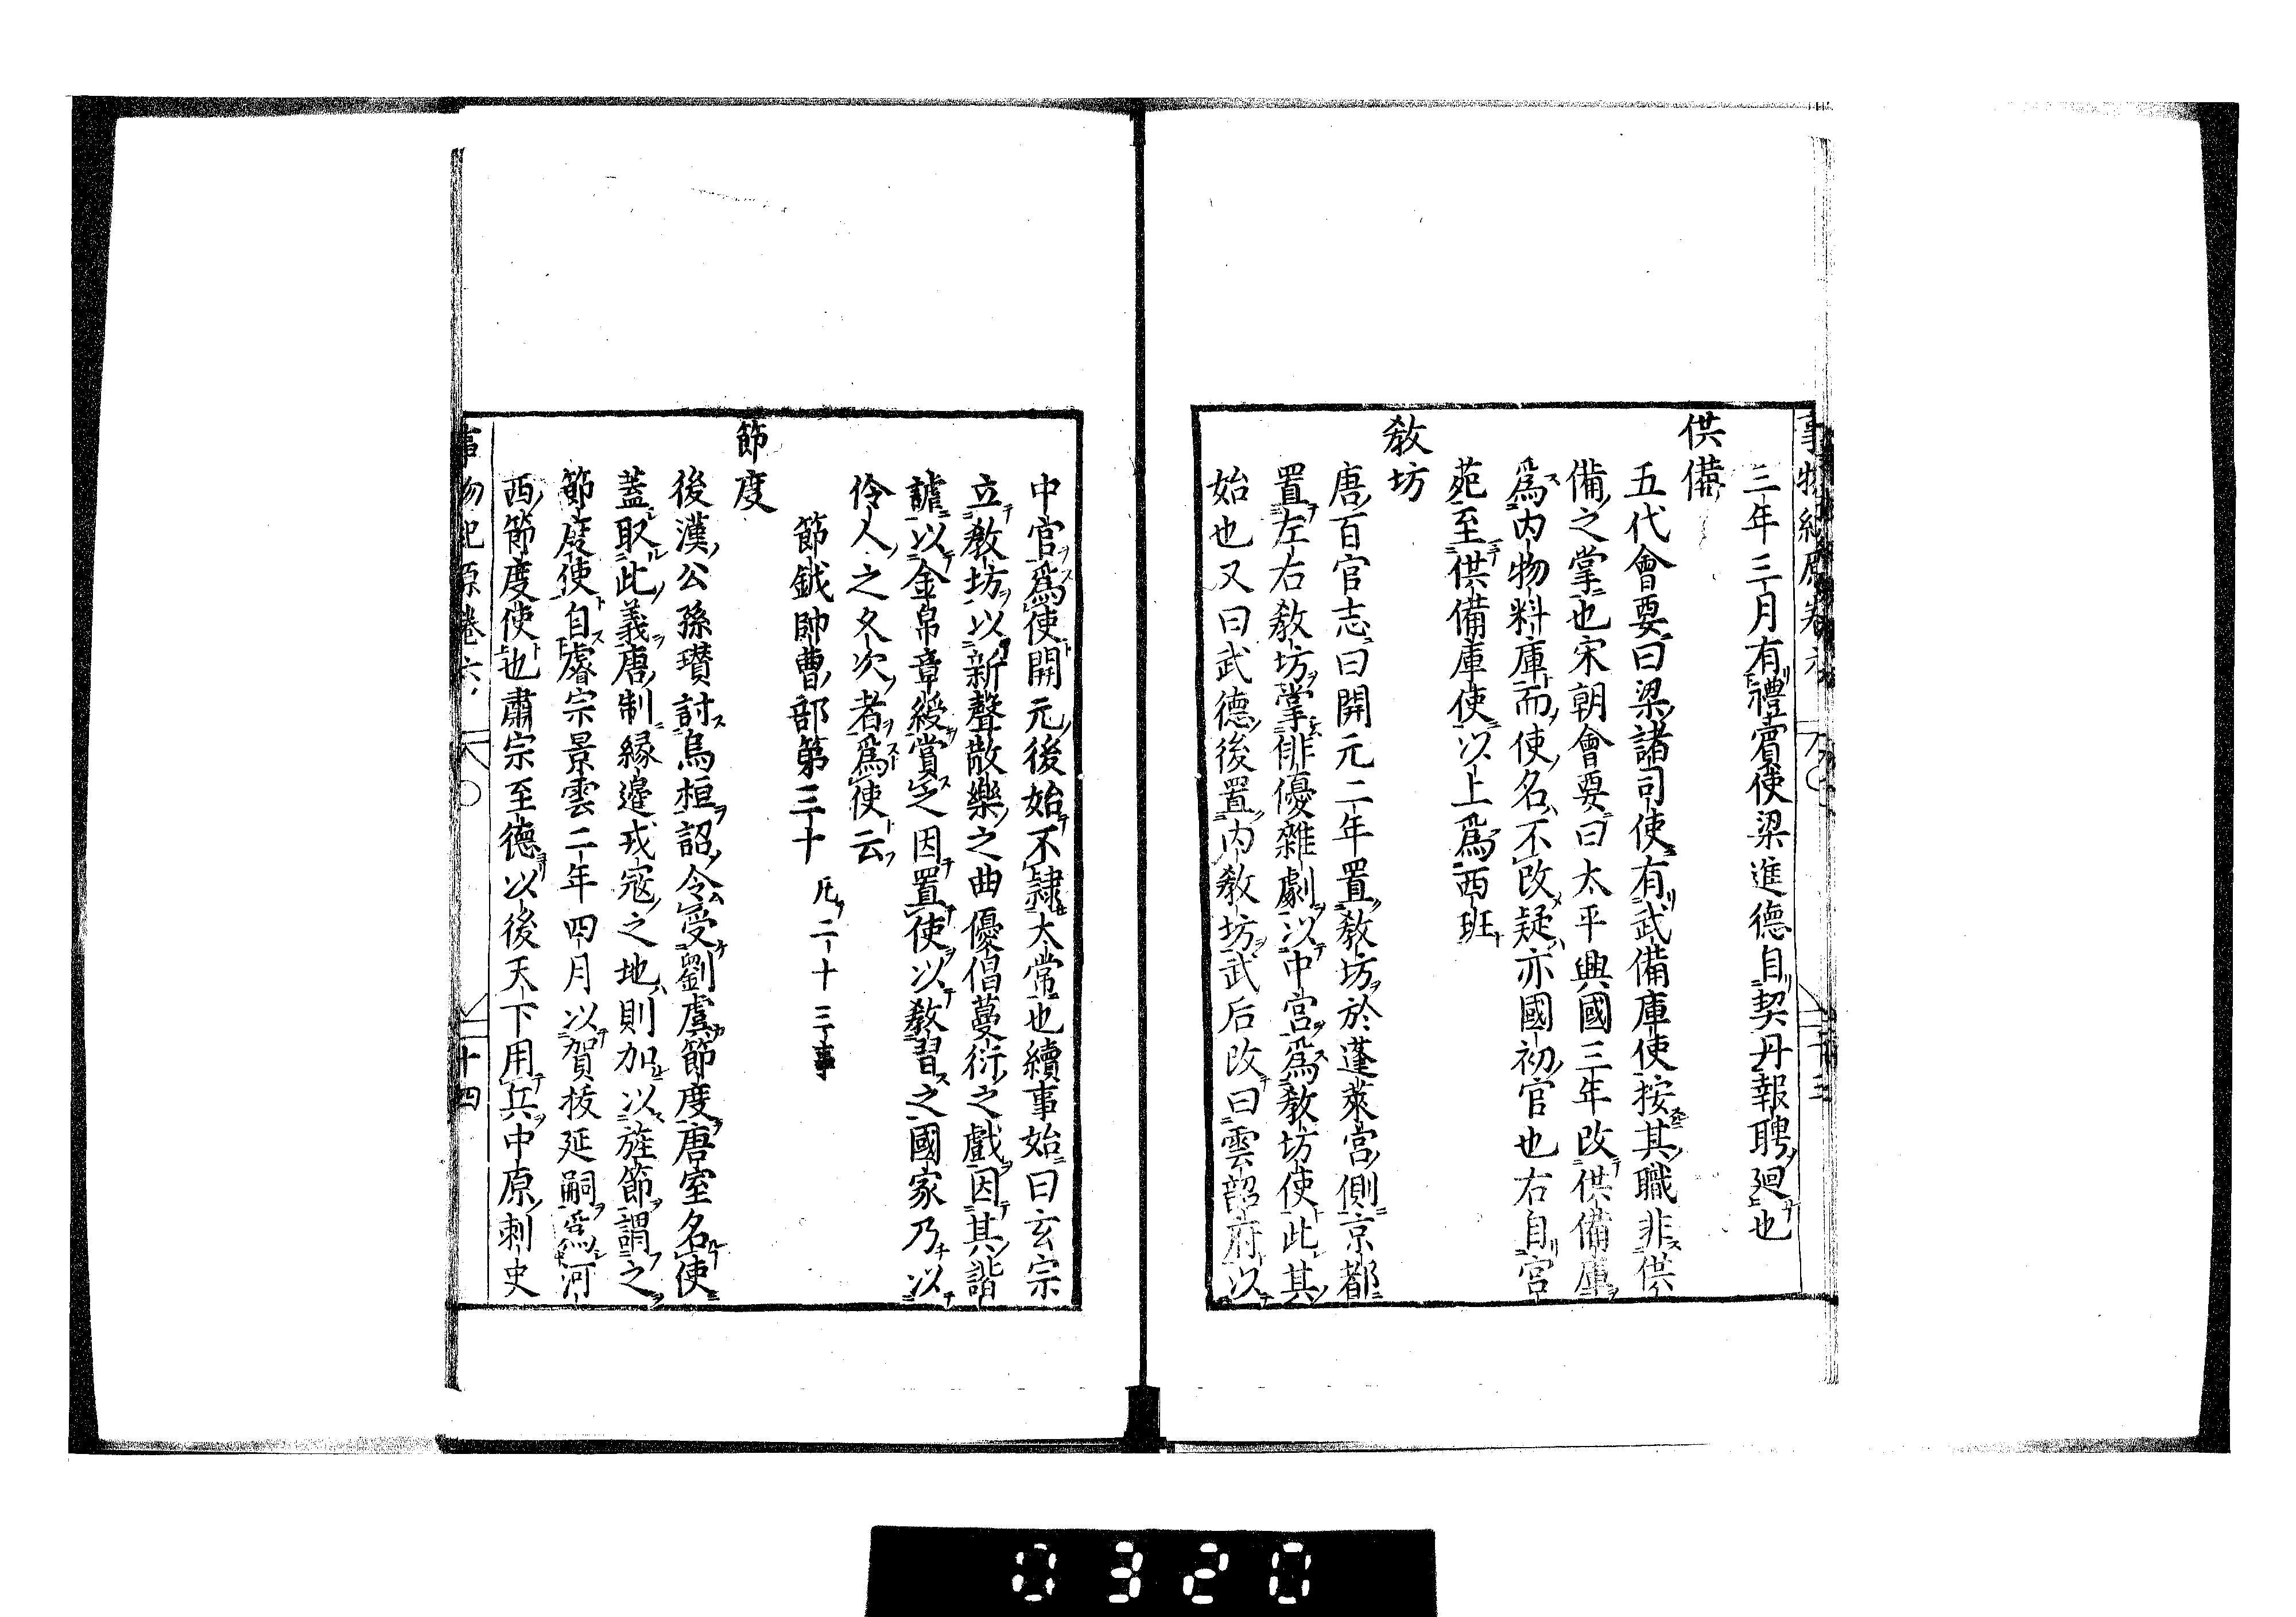 三年三月有禮賓使梁進德自契丹報聘廻也
供備
五代會要曰梁諸司使有武備庫使按其職非供
備之掌也宋朝會要曰太平興國三年改供備庫
爲内物料庫而使名不改疑亦國初官也右自宮
苑至供備庫使以上爲西班
教坊
唐百官志曰開元二年置教坊於蓬萊宮側京都
置左右教坊掌俳優雜劇以中官爲教坊使此其
始也又曰武德後置内教坊武后改曰雲韶府以
中官爲使開元後始不隷大常也續事始曰玄宗
立教坊以新聲散樂之曲優倡蔓衍之戲因其諧
謔以金帛章綬賞之因置使以教習之國家乃以
伶人之久次者爲使云
節鉞帥曹部第三十 凡二十三事
節度
後漢公孫瓚討烏桓詔令受劉虞節度唐室名使
蓋取此義唐制緣邊戎寇之地則加以旌節謂之
節度使自睿宗景雲二年四月以賀拔延嗣爲河
西節度使也肅宗至德以後天下用兵中原刺史
事物紀原卷六 十四